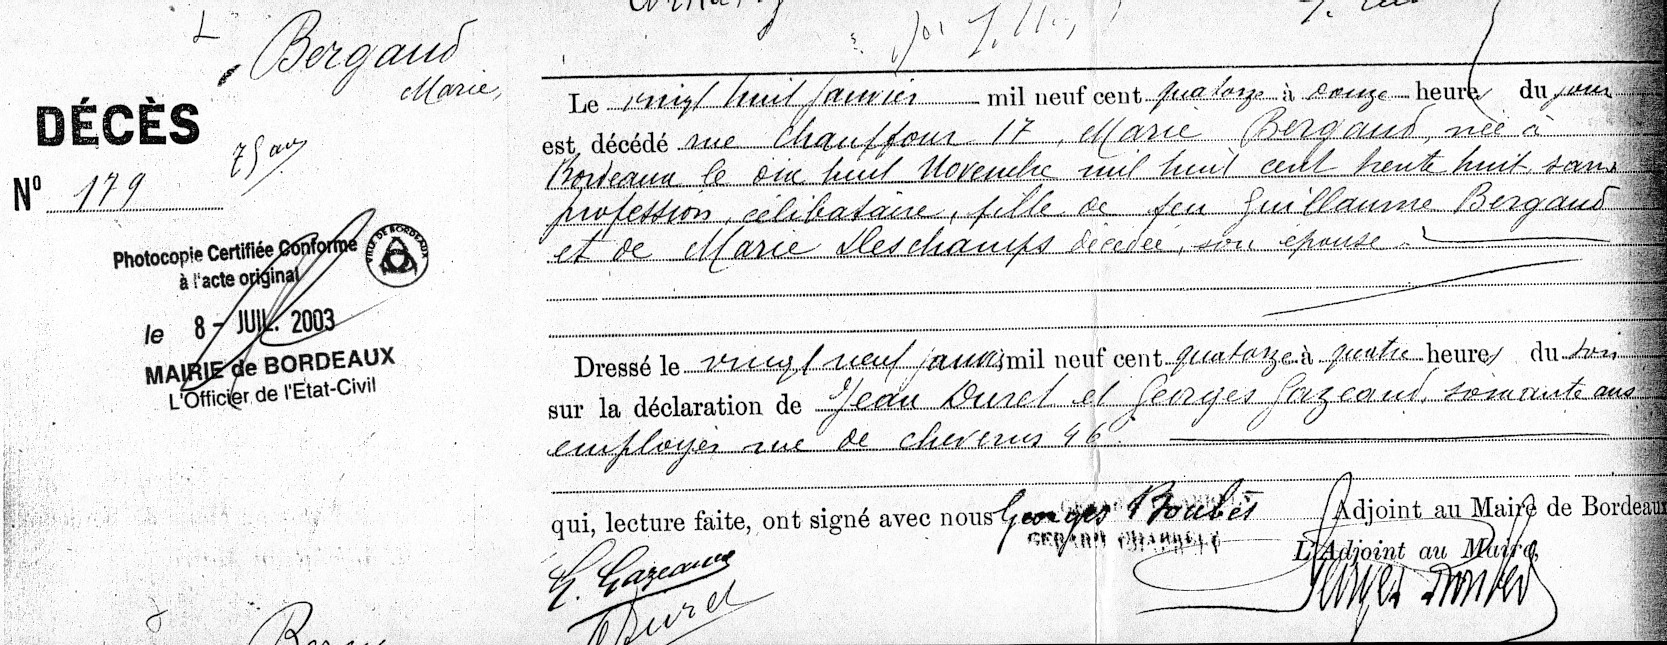 Bergaud
Marie,
DÉCÈS
75 ans
Nº 179
Photocopie Certifiée Conforme
à l'acte original
VILLE DE BORDEAUX
le 8 - JUIL. 2003
MAIRIE de BORDEAUX
L'Officier de l'Etat-Civil
Le vingt huit janvier mil neuf cent quatorze à onze heures du jour
est décédé rue Chauffour 17, Marie Bergaud, née à
Bordeaux le dix huit Novembre mil huit cent trente huit, sans
profession, célibataire, fille de feu Guillaume Bergaud
et de Marie Deschamps décédée, son épouse.
Dressé le vingt neuf janvier mil neuf cent quatorze à quatre heures du soir
sur la déclaration de Jean Duret et Georges Gazeaud, soixante ans
employés rue de Cheverus 46.
qui, lecture faite, ont signé avec nous Georges Boubès Adjoint au Maire de Bordeaux
L'Adjoint au Maire,
G. Gazeaud
Duret